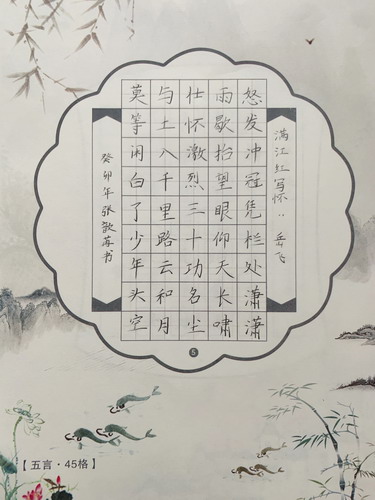 满江红写怀:: 岳飞
怒发冲冠凭栏处潇潇
雨歇抬望眼仰天长啸
仕怀激烈三十功名尘
与土八千里路云和月
莫等闲白了少年头空
癸卯年张书
5
【五言·45格】